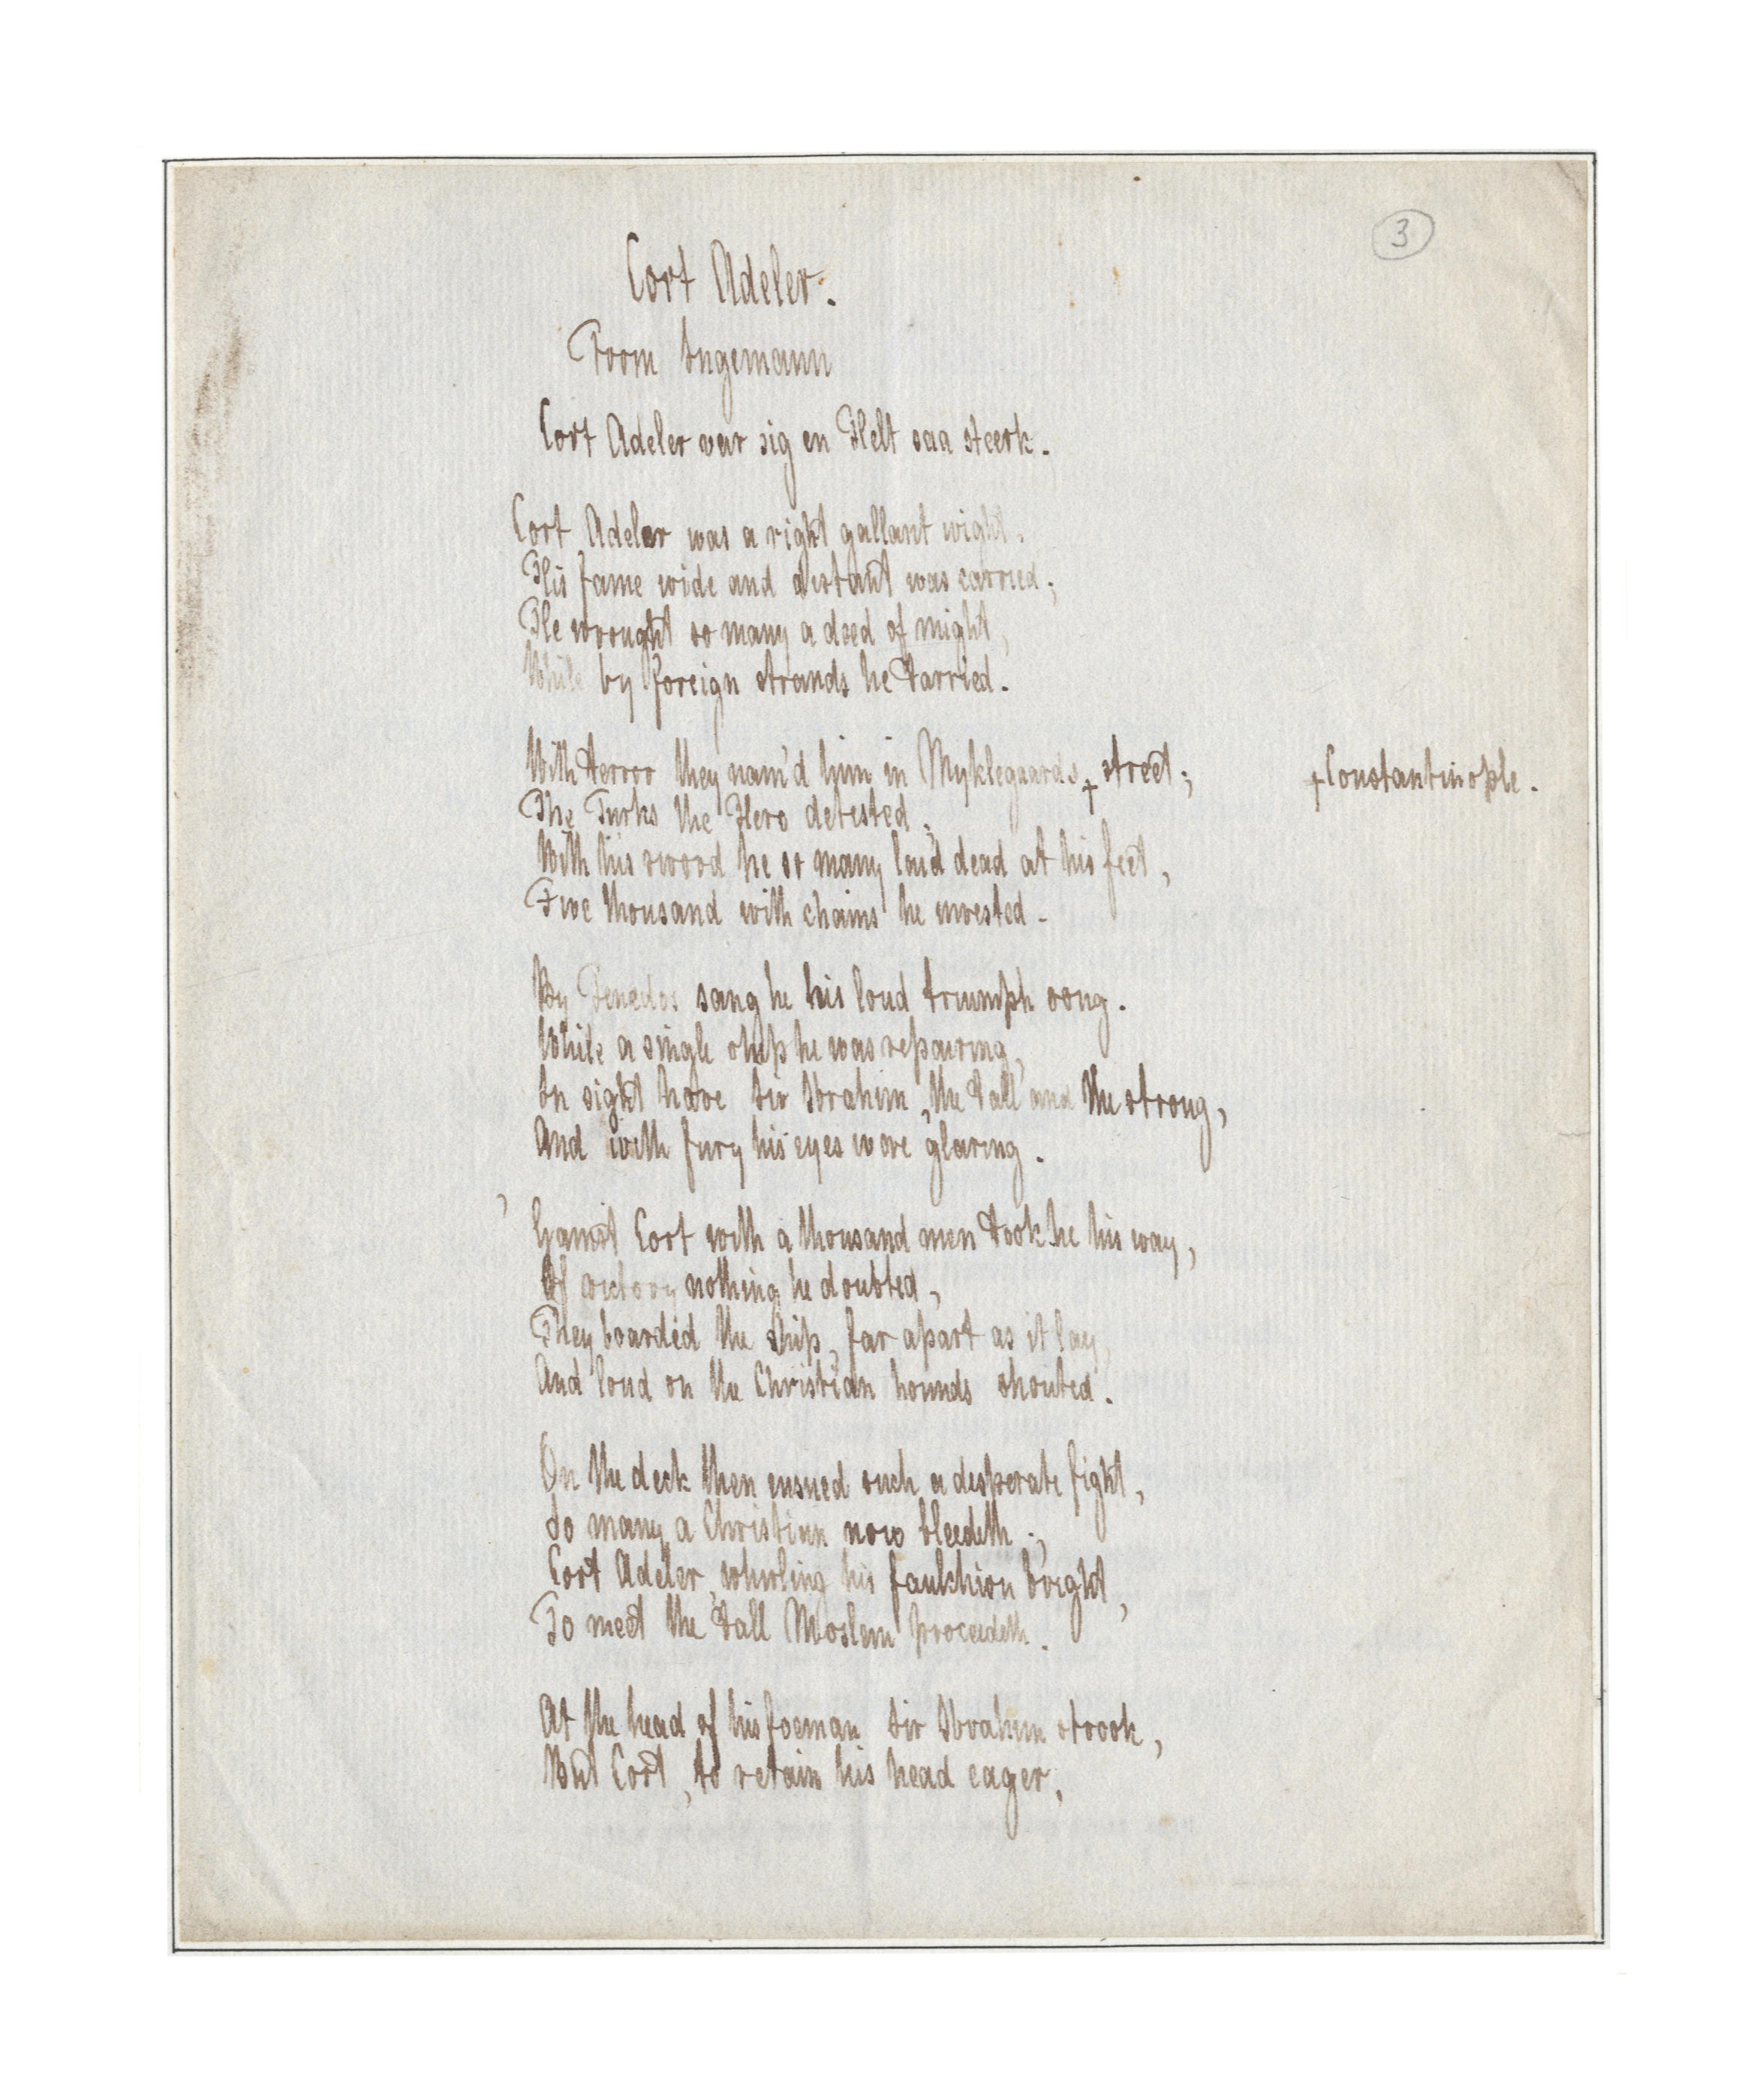 3
Cort Adeler.
From Ingemann
Cort Adeler var sig en Helt saa stærk.
Cort Adeler was a right gallant wight,
His fame wide and distant was carried;
He wrought so many a deed of might,
While by foreign strands he tarried.
With terror they nam'd him in Myklegaards † street;
† Constantinople.
The Turks the Hero detested.
With his sword he so many laid dead at his feet,
Five thousand with chains he invested.
By Tenedos sang he his loud triumph song.
While a single ship he was repairing,
In sight hove Sir Ibrahim, the tall and the strong,
And with fury his eyes were glaring.
'Gainst Cort with a thousand men took he his way,
Of victory nothing he doubted,
They boarded the ship, far apart as it lay,
And loud on the Christian hounds shouted.
On the deck then ensued such a desperate fight,
So many a Christian now bleedeth;
Cort Adeler, whirling his faulchion bright,
To meet the tall Moslem proceedeth.
At the head of his foeman Sir Ibrahim strook,
But Cort, to retain his head eager,